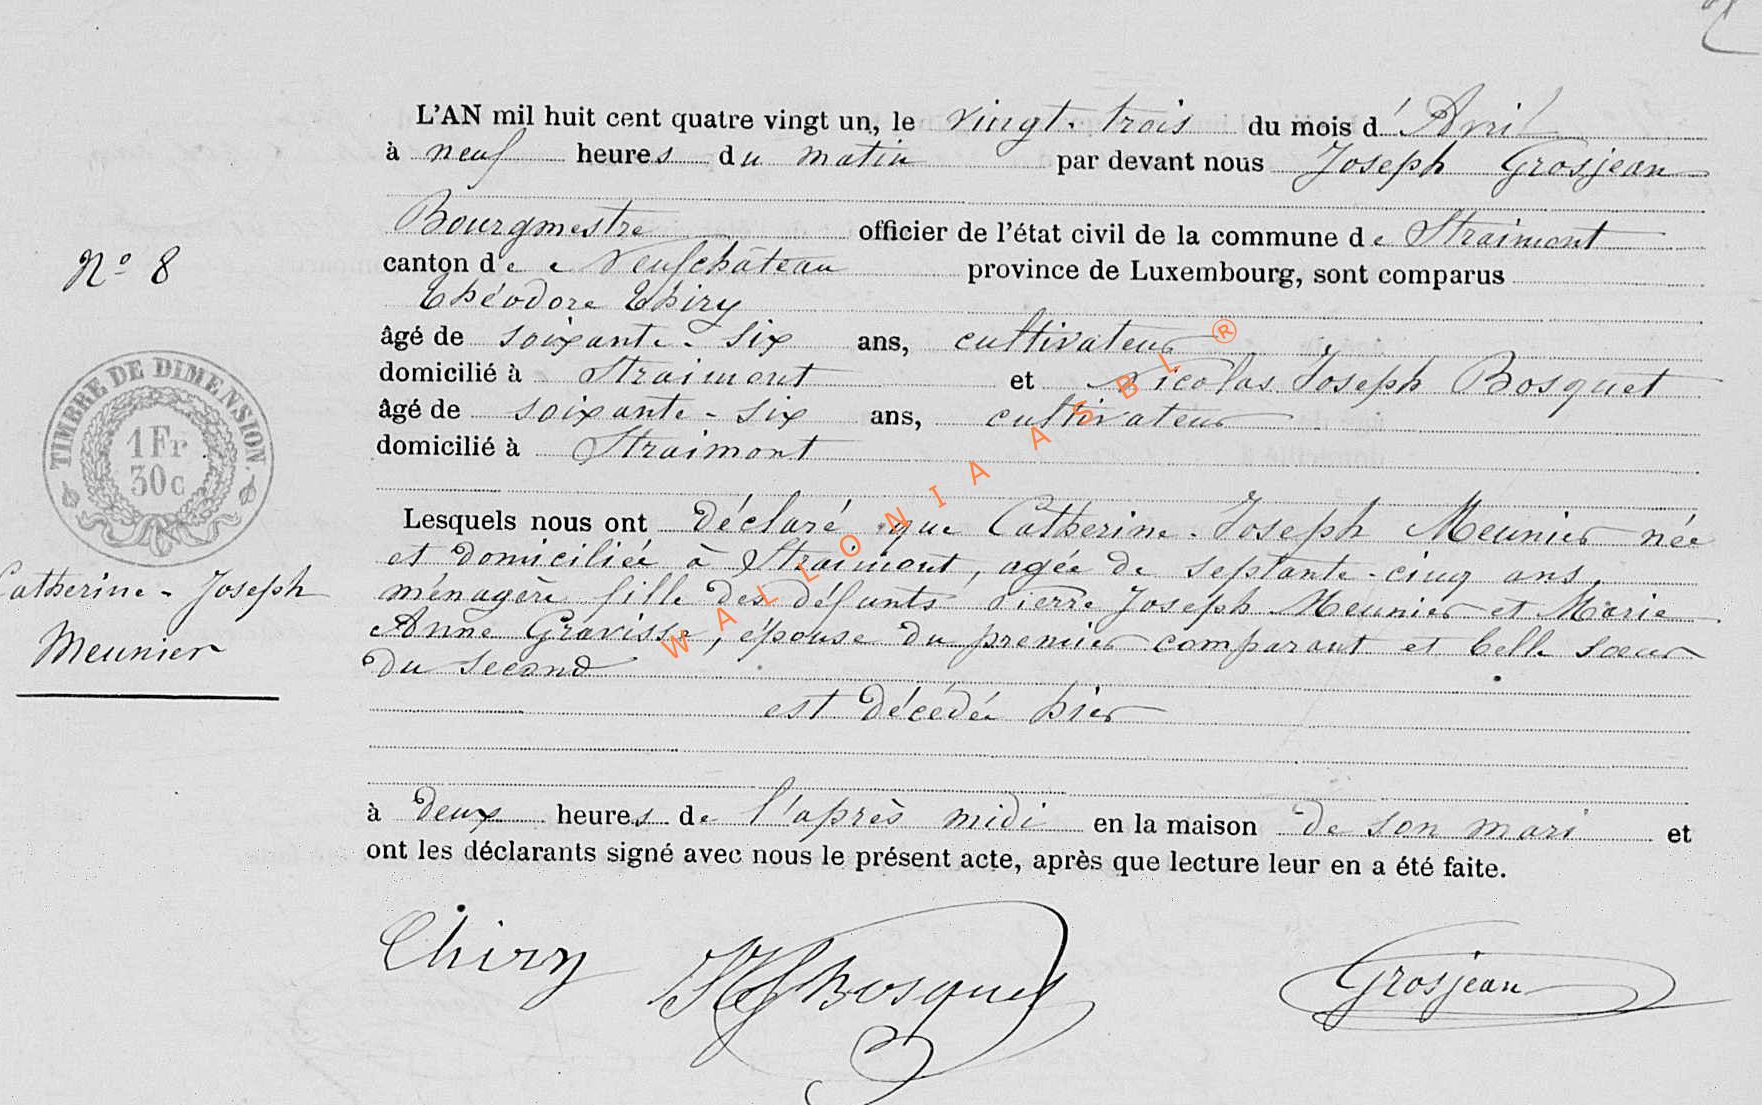 L'AN mil huit cent quatre vingt un, le vingt-trois du mois d'Avril
à neuf heures du matin par devant nous Joseph Grosjean
Bourgmestre officier de l'état civil de la commune de Straimont
canton de Neufchâteau province de Luxembourg, sont comparus
Théodore Thiry
âgé de soixante-six ans, cultivateur
domicilié à Straimont et Nicolas Joseph Bosquet
âgé de soixante-six ans, cultivateur
domicilié à Straimont
Lesquels nous ont déclaré que Catherine-Joseph Meunier née
et domiciliée à Straimont, agée de septante-cinq ans,
ménagère fille des défunts Pierre Joseph Meunier et Marie
Anne Gravisse, épouse du premier comparant et belle soeur
du second
est décédée hier
à deux heures de l'après midi en la maison de son mari et
ont les déclarants signé avec nous le présent acte, après que lecture leur en a été faite.
Thiry
NJ Bosquet
Grosjean
No 8
TIMBRE DE DIMENSION.
1 Fr
30c
Catherine-Joseph
Meunier
WALLONIA ASBL ®